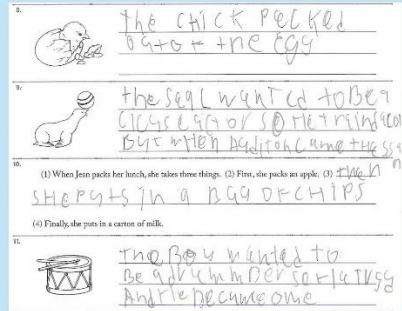 8.
the chick pecked
outof the egg
9.
the seal wanted toBe a
so He traind
But when Auditon came the
10.
(1) When Jean packs her lunch, she takes three things. (2) First, she packs an apple. (3) then
SHe puts in a BaG OF CHIPS
(4) Finally, she puts in a carton of milk.
11.
The Boy wanted to
Be a drummer
And He became one